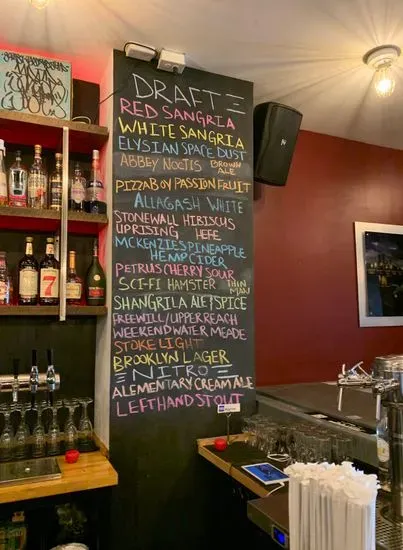 DRAFT
RED SANGRIA
WHITE SANGRIA
ELYSIAN SPACE DUST
ABBEY NOCTIS BROWN ALE
PIZZABOY PASSION FRUIT
ALLAGASH WHITE
STONEWALL HIBISCUS
UPRISING HEFE
MCKENZIES PINEAPPLE
HEMP CIDER
PETRUS CHERRY SOUR
SCI-FI HAMSTER THIN MAN
SHANGRILA ALE & SPICE
FREEWILL/UPPER REACH
WEEKEND WATER MEADE
STOKE LIGHT
BROOKLYN LAGER
NITRO
ALEMENTARY CREAM ALE
LEFTHAND STOUT
7